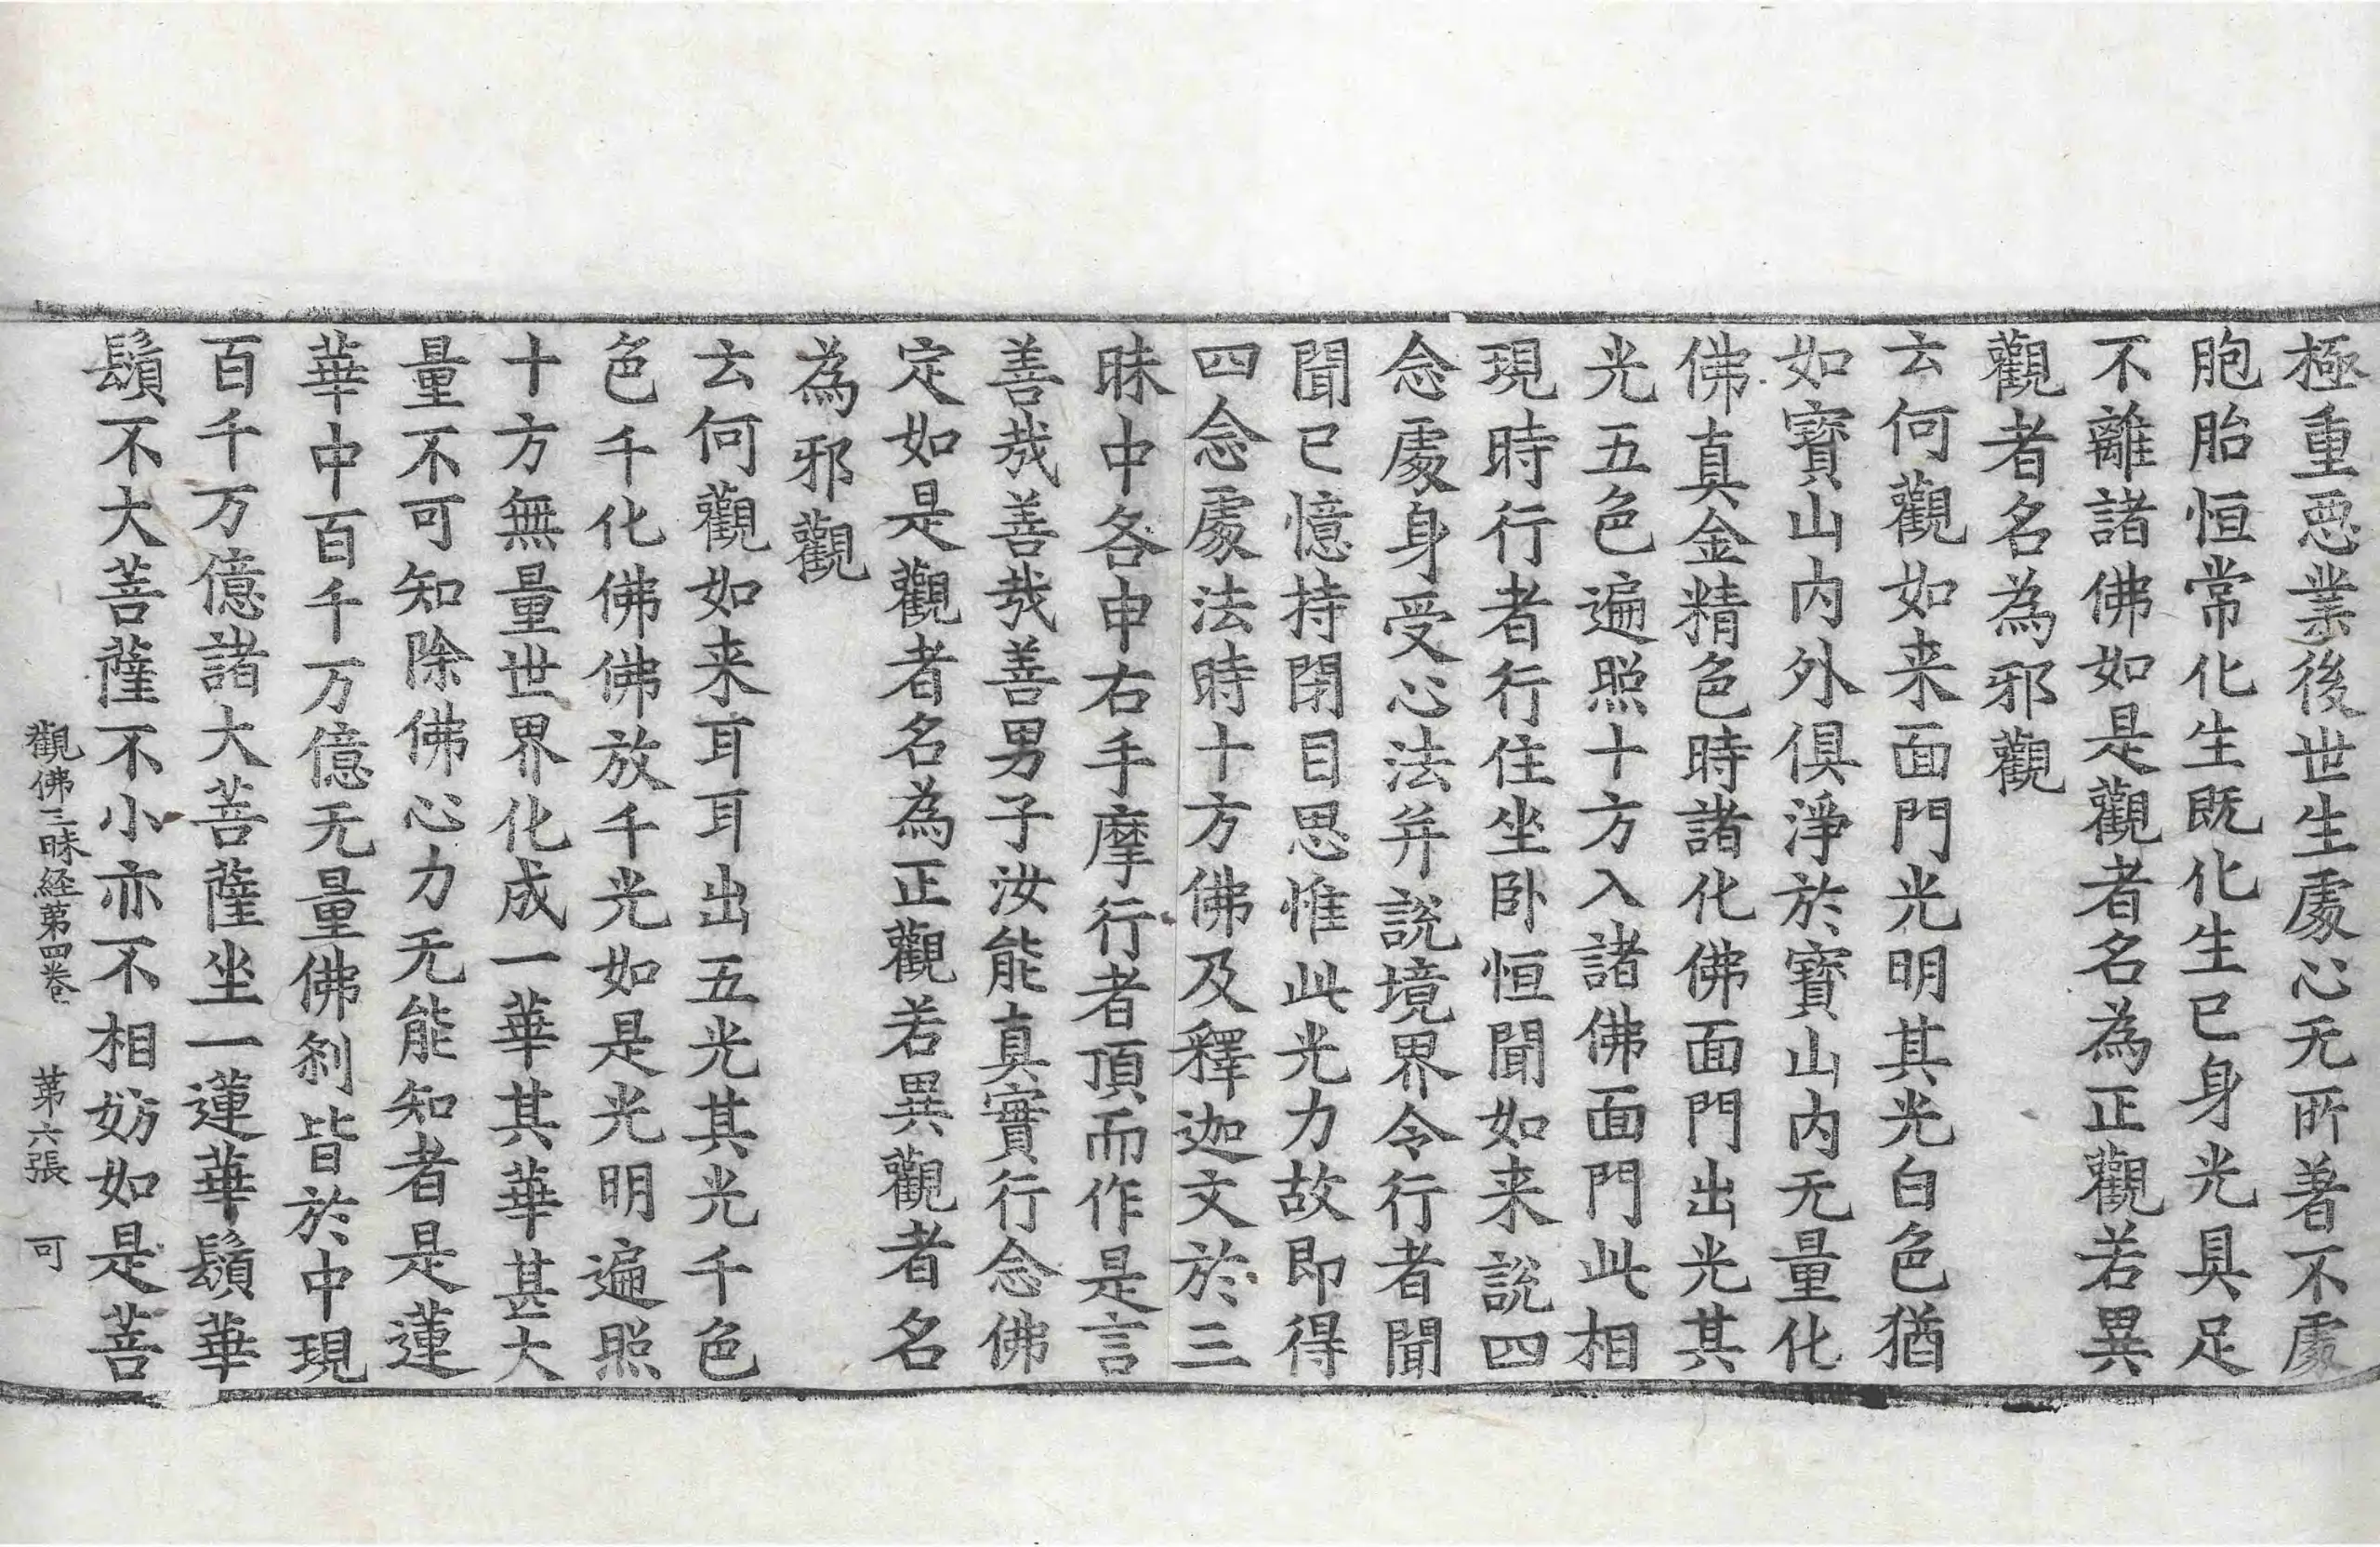 極重惡業後世生處心无所著不處
胞胎恒常化生既化生已身光具足
不離諸佛如是觀者名為正觀若異
觀者名為邪觀
云何觀如来面門光明其光白色猶
如寶山内外俱淨於寶山内无量化
佛真金精色時諸化佛面門出光其
光五色遍照十方入諸佛面門此相
現時行者行住坐卧恒聞如来說四
念處身受心法并說境界令行者聞
聞已憶持閉目思惟此光力故即得
四念處法時十方佛及釋迦文於三
昧中各申右手摩行者頂而作是言
善哉善哉善男子汝能真實行念佛
定如是觀者名為正觀若異觀者名
為邪觀
云何觀如来耳耳出五光其光千色
色千化佛佛放千光如是光明遍照
十方無量世界化成一華其華甚大
量不可知除佛心力无能知者是蓮
華中百千万億无量佛剎皆於中現
百千万億諸大菩薩坐一蓮華鬚華
鬚不大菩薩不小亦不相妨如是菩
觀佛三昧経第四卷 第六張 可